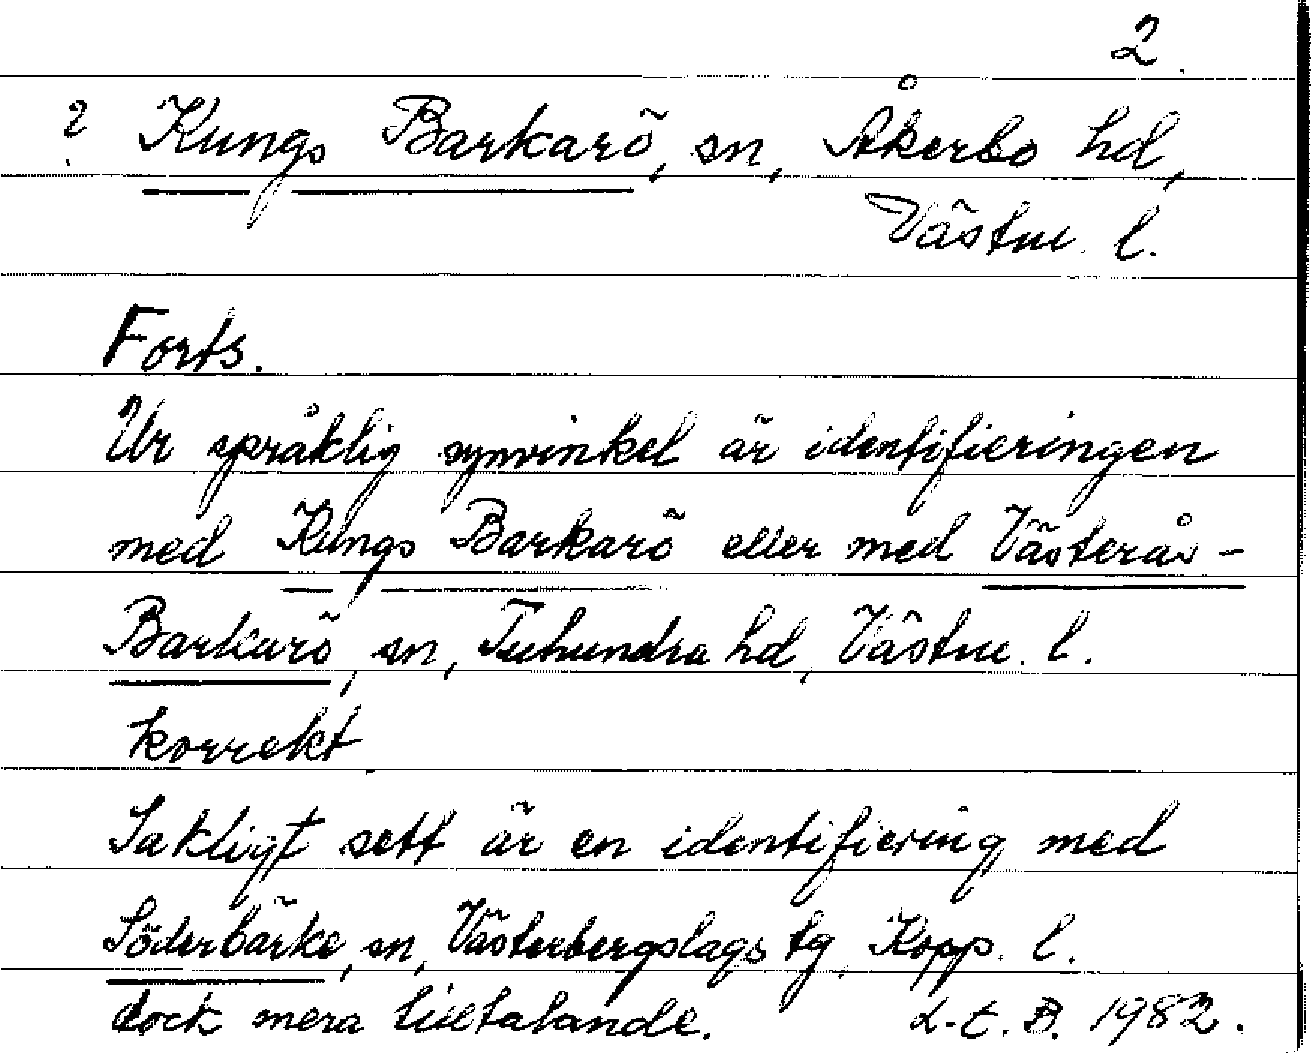 2.
? Kungs Barkarö, sn, Åkerbo hd,
Västm. l.
Forts.
Ur språklig synvinkel är identifieringen
med Kungs Barkarö eller med Västerås-
Barkarö, sn, Tuhundra hd, Västm. l.
korrekt
Sakligt sett är en identifiering med
Söderbärke, sn, Västerbergslags tg, Kopp. l.
dock mera tilltalande. L.E.B. 1982.